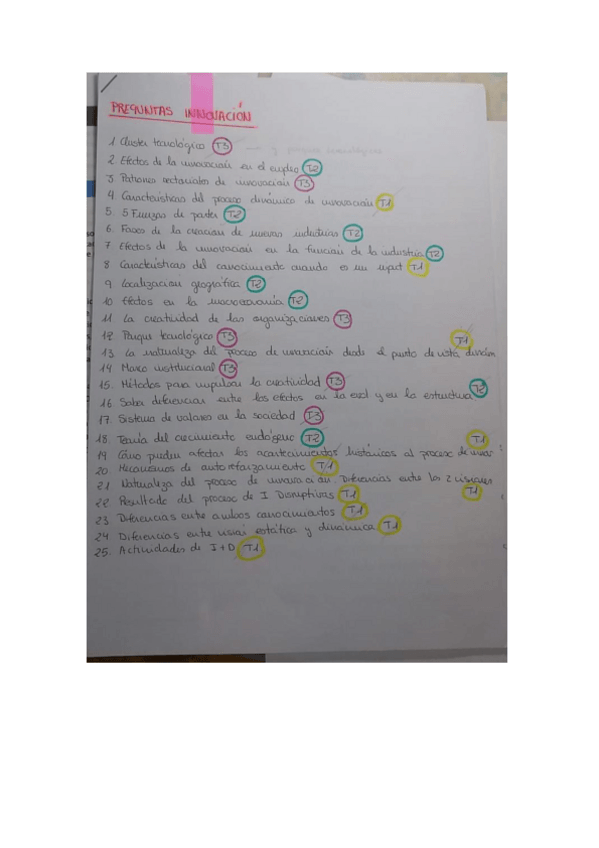 PREGUNTAS INNOVACIÓN
1 Cluster tecnológico T3
2 Efectos de la innovación en el empleo T2
3 Patrones sectoriales de innovación T3
4 Características del proceso dinámico de innovación T1
5. 5 Fuerzas de porter T2
6. Fases de la creación de nuevas industrias T2
7 Efectos de la innovación en la función de la industria T2
8 Características del conocimiento cuando es un input T1
9 Localización geográfica T2
10 Efectos en la macroeconomía T2
11 La creatividad de las organizaciones T3
12. Parque tecnológico T3
13 La naturaleza del proceso de innovación desde el punto de vista dinám T1
14 Marco institucional T3
15. Métodos para impulsar la creatividad T3
16 Saber diferenciar entre los efectos en la evol y en la estructura T2
17. Sistema de valores en la sociedad T3
18. Teoría del crecimiento endógeno T2
19 Cómo pueden afectar los acontecimientos históricos al proceso de innov T1
20 Mecanismos de autoreforzamiento T1
21 Naturaleza del proceso de innovación. Diferencias entre las 2 visiones T1
22 Resultado del proceso de I Disruptivas T1
23 Diferencias entre ambos conocimientos T1
24 Diferencias entre visión estática y dinámica T1
25. Actividades de I+D T1